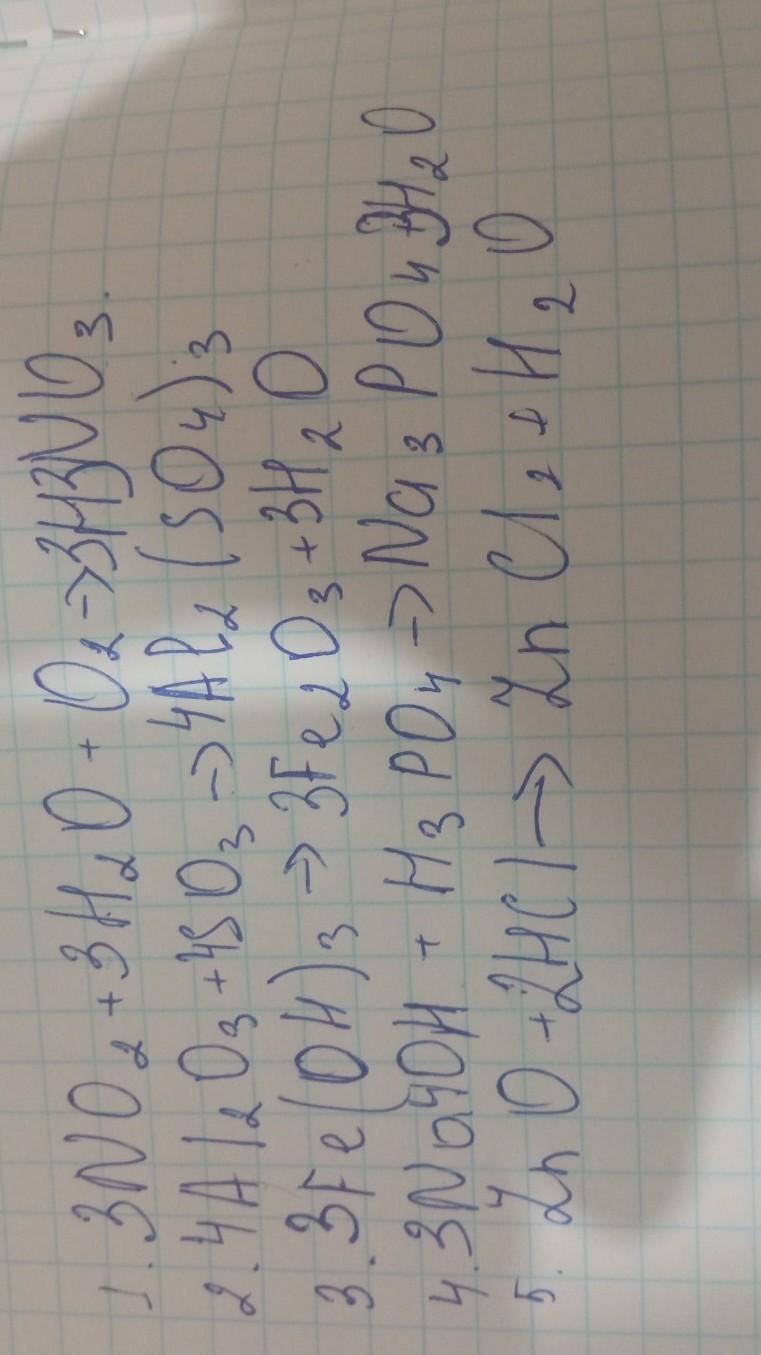 1. 3NO2 + 3H2O + O2 → 3H3NO3.
2. 4Al2O3 + 4SO3 → 4Al2(SO4)3
3. 3Fe(OH)3 → 3Fe2O3 + 3H2O
4. 3NaOH + H3PO4 → Na3PO4 + 3H2O
5. ZnO + 2HCl → ZnCl2 + H2O